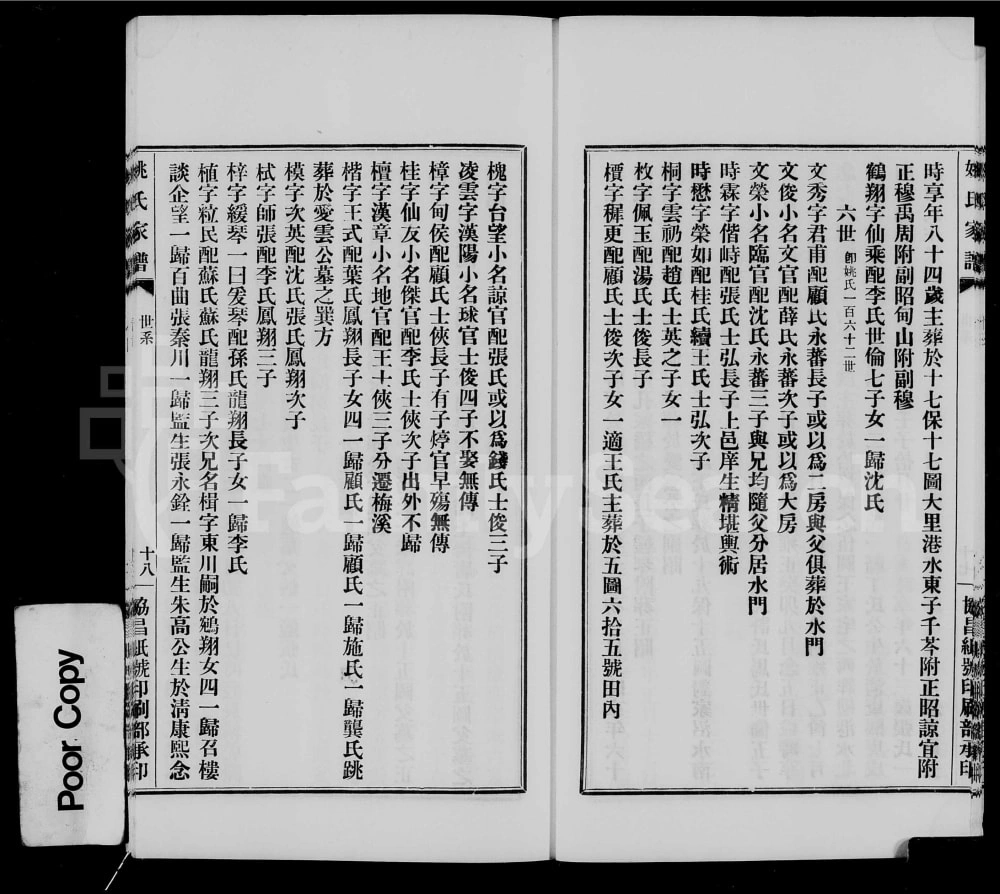 時享年八十四歲主葬於十七保十七圖大里港水東子千芩附正昭諒宜附
正穆禹周附副昭甸山附副穆
鶴翔字仙乘配李氏世倫七子女一歸沈氏
六世 卽姚氏一百六十二世
文秀字君甫配顧氏永蕃長子或以爲二房與父俱葬於水門
文俊小名文官配薛氏永蕃次子或以爲大房
文榮小名臨官配沈氏永蕃三子與兄均隨父分居水門
時霖字偕峙配張氏士弘長子上邑庠生精堪輿術
時懋字榮如配桂氏續王氏士弘次子
桐字雲礽配趙氏士英之子女一
枚字佩玉配湯氏士俊長子
櫝字穉更配顧氏士俊次子女一適王氏主葬於五圖六拾五號田內
槐字台望小名諒官配張氏或以爲錢氏士俊三子
凌雲字漢陽小名球官士俊四子不娶無傳
樟字甸侯配顧氏士俠長子有子煷官早殤無傳
桂字仙友小名傑官配李氏士俠次子出外不歸
檀字漢章小名地官配王士俠三子分遷梅溪
楷字王式配葉氏鳳翔長子女四一歸顧氏一歸顧氏一歸施氏一歸龔氏跳
葬於愛雲公墓之巽方
模字次英配沈氏張氏鳳翔次子
栻字師張配李氏鳳翔三子
梓字緩琴一曰爰琴配孫氏龍翔長子女一歸李氏
植字粒民配蘇氏蘇氏龍翔三子次兄名楫字東川嗣於鵷翔女四一歸召樓
談企望一歸百曲張秦川一歸監生張永銓一歸監生朱高公生於淸康熙念
姚氏家譜
世系
十八
協昌紙號印刷部承印
Poor Copy
FamilySearch